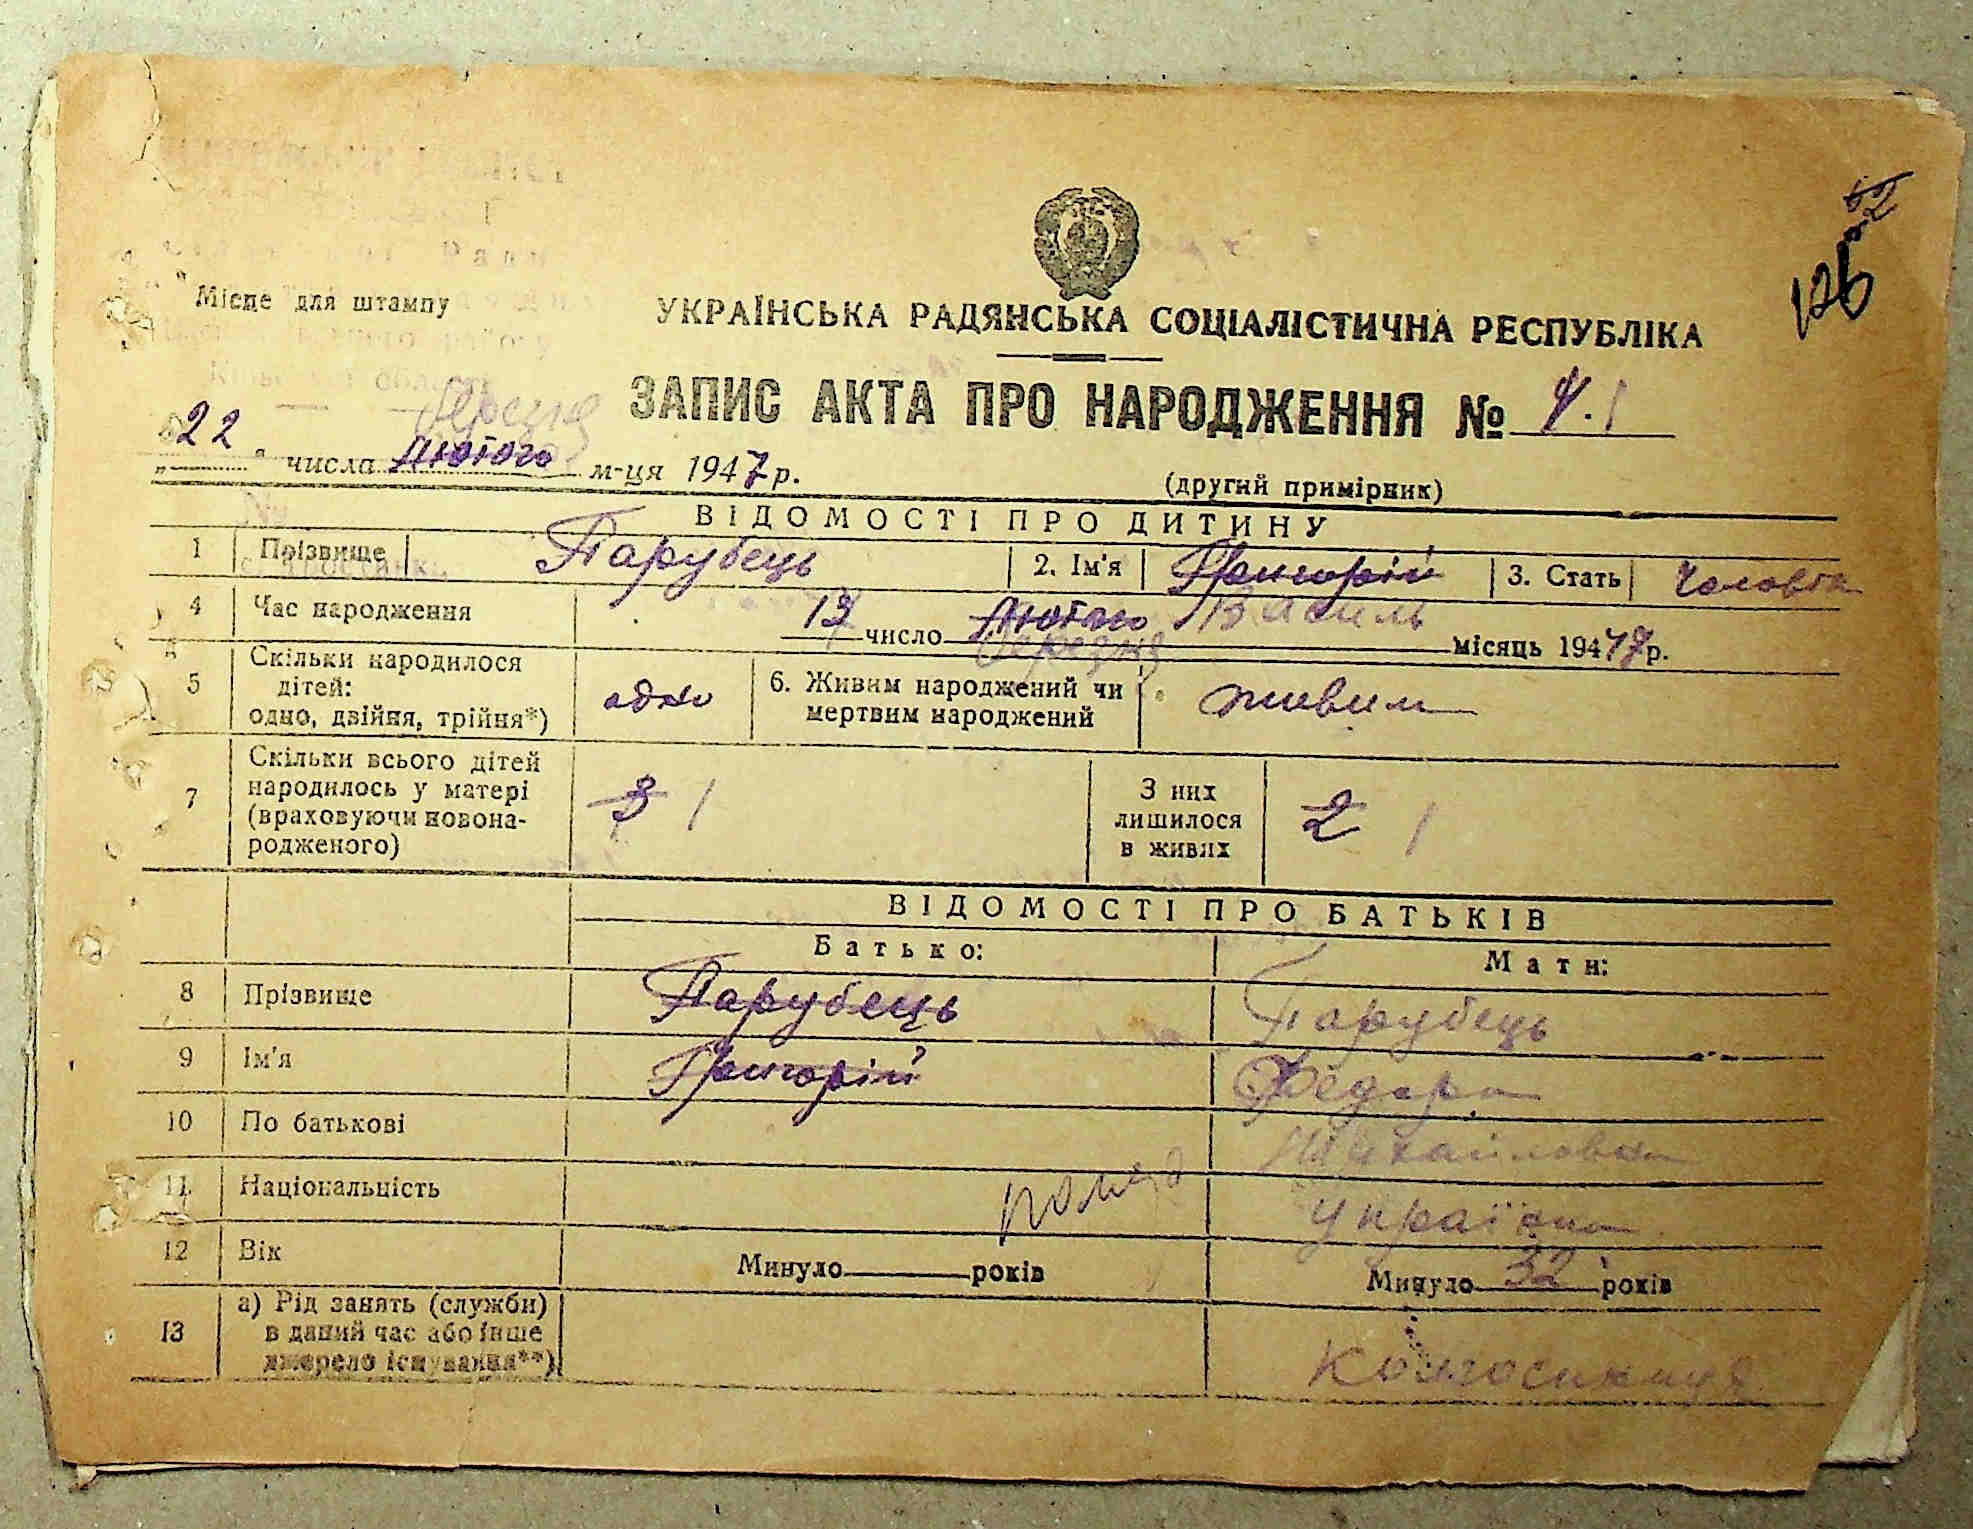 52
126
Місце для штампу
УКРАЇНСЬКА РАДЯНСЬКА СОЦІАЛІСТИЧНА РЕСПУБЛІКА
ЗАПИС АКТА ПРО НАРОДЖЕННЯ №
березня
„22" числа лютого м-ця 1947 р.
(другий примірник)
ВІДОМОСТІ ПРО ДИТИНУ
1 Прізвище Парубець 2. Ім'я Григорій 3. Стать
Василь
4 Час народження число лютого місяць 1947 р.
березня
5 Скільки народилося дітей: одно, двійня, трійня*) одно 6. Живим народжений чи мертвим народжений живим
7 Скільки всього дітей народилось у матері (враховуючи новонародженого) 3 1 З них лишилося в живих 2 1
ВІДОМОСТІ ПРО БАТЬКІВ
Батько: Мати:
8 Прізвище Парубець Парубець
9 Ім'я Григорій Федора
10 По батькові Михайловна
11 Національність Україна
12 Вік Минуло років Минуло 32 років
13 а) Рід занять (служби) в даний час або інше джерело існування**) Колгоспниця